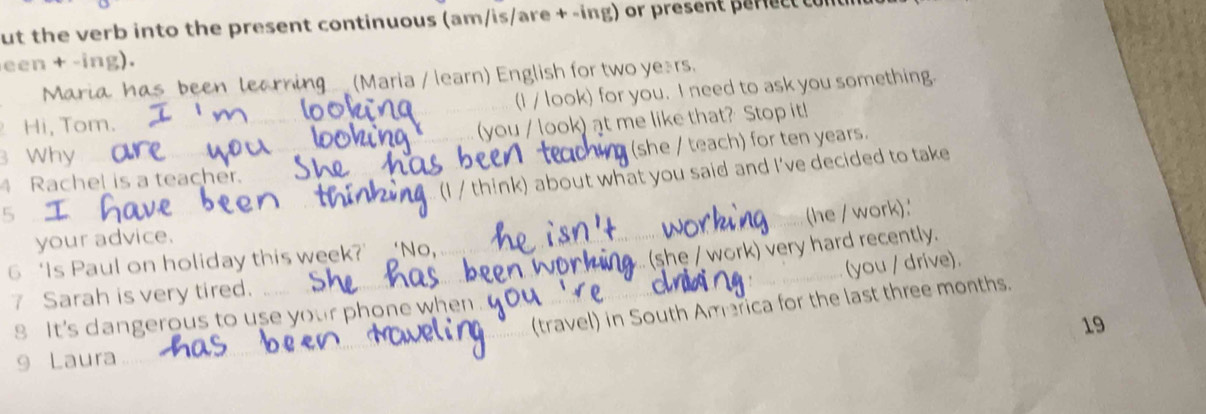 ut the verb into the present continuous (am/is/are + -ing) or present perfect
een + -ing).
Maria has been learning (Maria / learn) English for two years.
2 Hi, Tom. I'm looking (I / look) for you. I need to ask you something.
3 Why are you looking (you / look) at me like that? Stop it!
4 Rachel is a teacher. She has been teaching (she / teach) for ten years.
5 I have been thinking (I / think) about what you said and I've decided to take
your advice.
6 'Is Paul on holiday this week?' 'No, he isn't working (he / work).'
7 Sarah is very tired. She has been working (she / work) very hard recently.
8 It's dangerous to use your phone when you're driving. (you / drive).
9 Laura has been traveling (travel) in South America for the last three months.
19